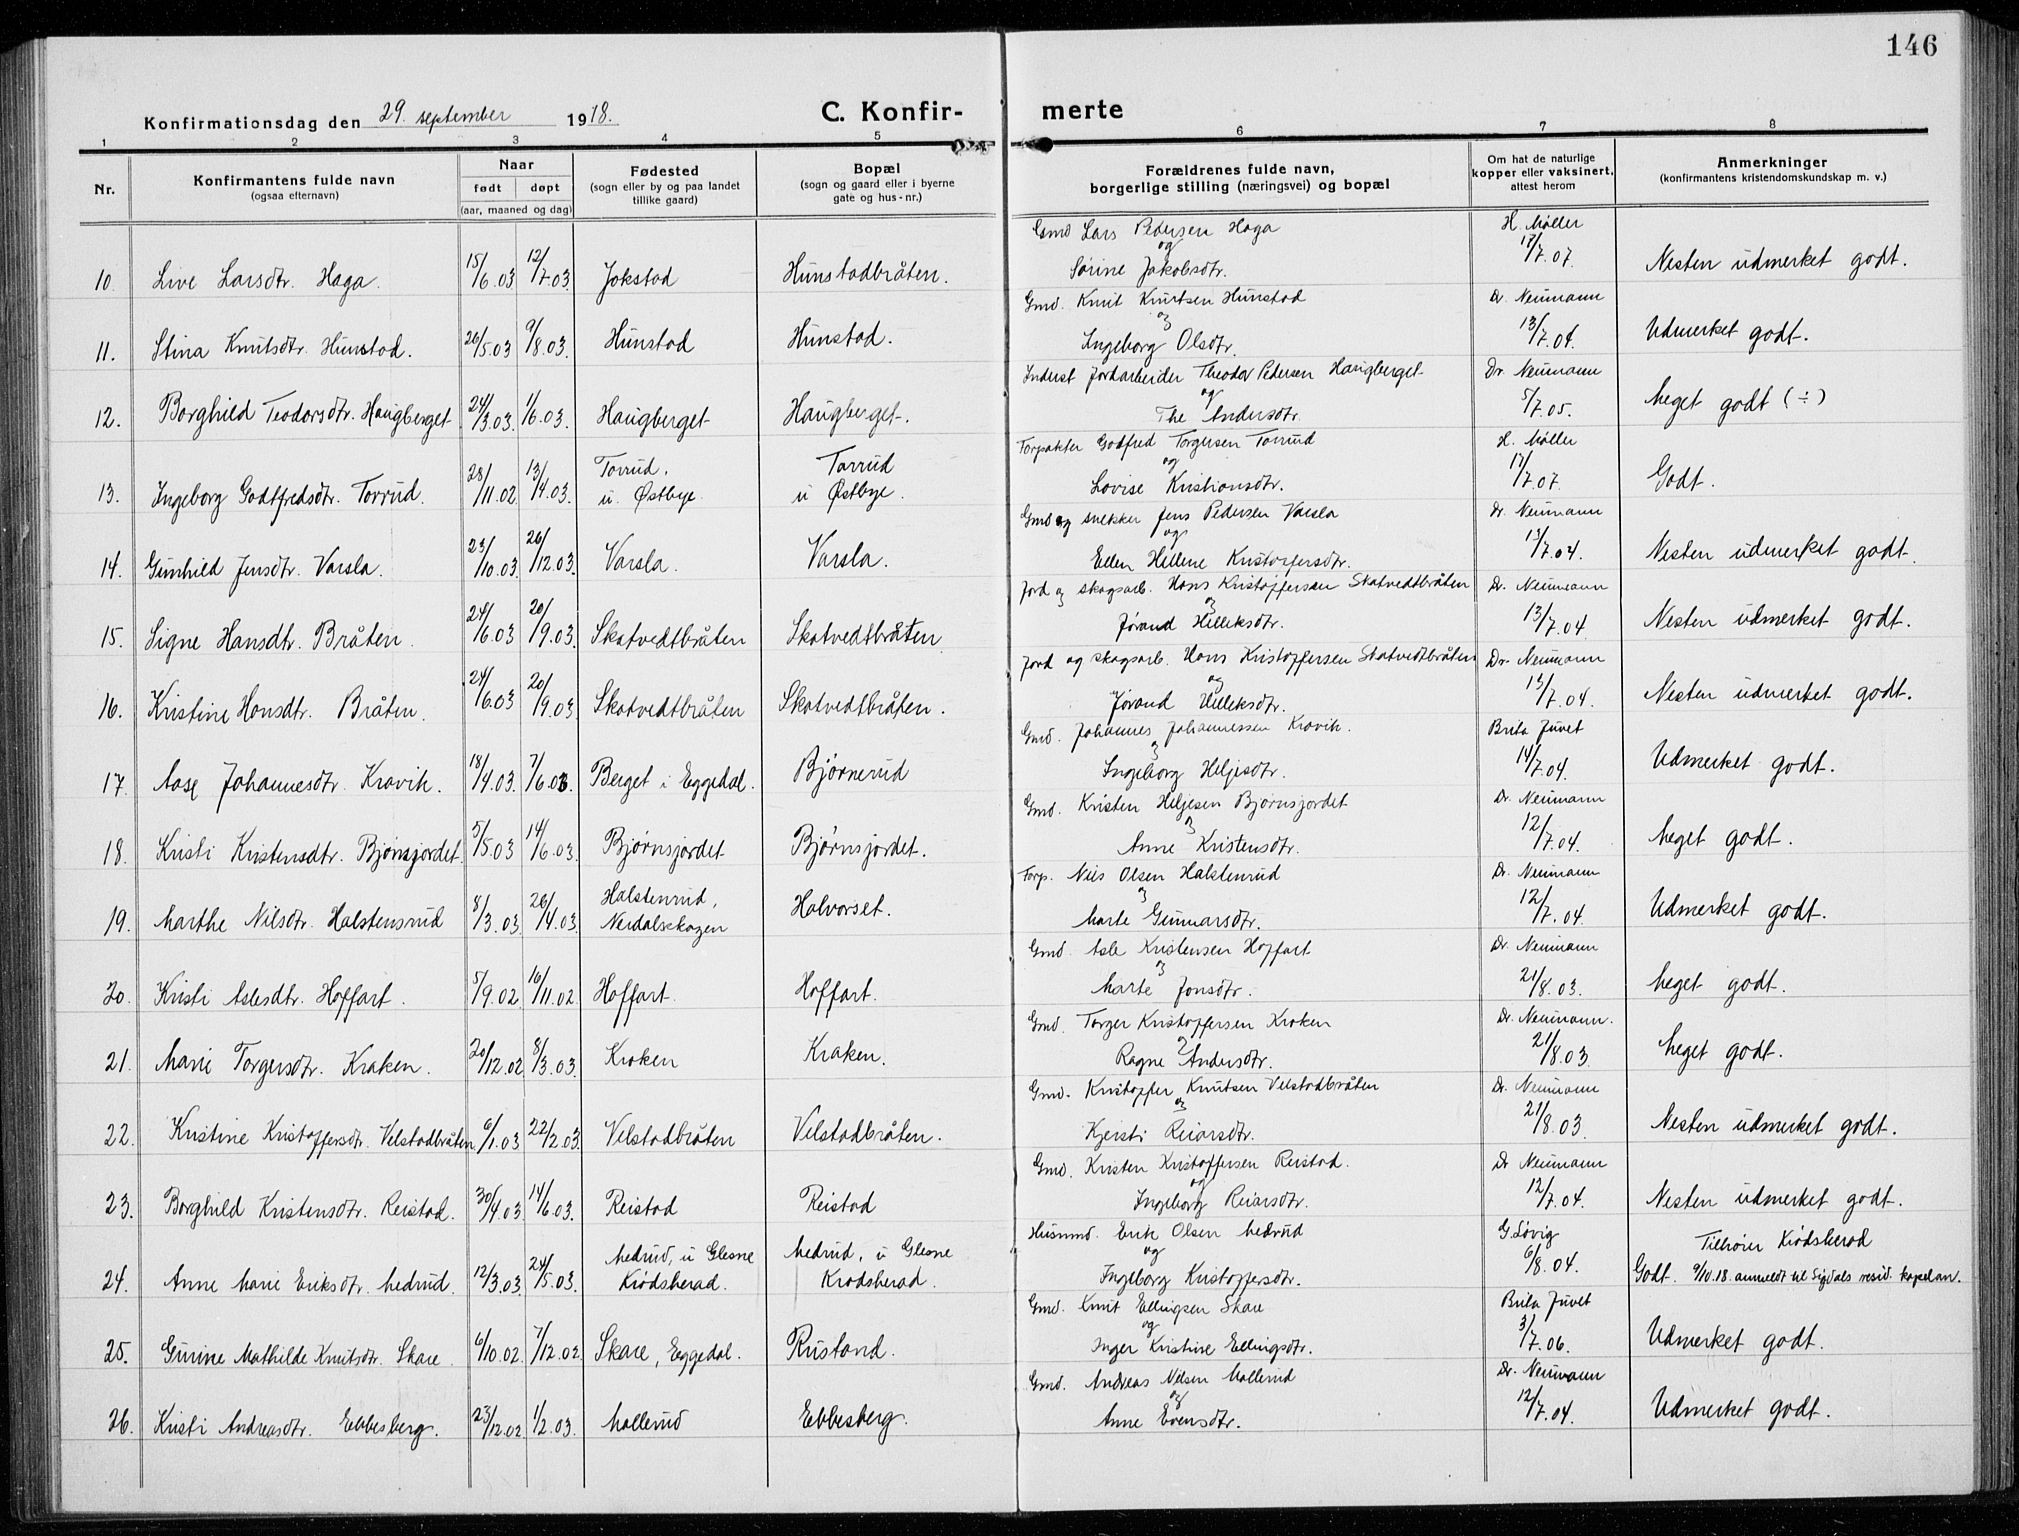 146
Konfirmationsdag den 29. september 1918.
C. Konfirmerte
1 2 3 4 5 6 7 8
Nr.
Konfirmantens fulde navn
(ogsaa efternavn)
Naar
født døpt
(aar, maaned og dag)
Fødested
(sogn eller by og paa landet
tillike gaard)
Bopæl
(sogn og gaard eller i byerne
gate og hus-nr.)
Forældrenes fulde navn,
borgerlige stilling (næringsvei) og bopæl
Om hat de naturlige
kopper eller vaksinert,
attest herom
Anmerkninger
(konfirmantens kristendomskundskap m. v.)
Gmd Lars Pedersen Haga H. Møller
og
10. Live Larsdtr. Haga. 15/6.03 12/7.03. Jokstad Hunstadbråten. Sørine Jakobsdtr. 17/7.07. Nesten udmerket godt.
Gmd. Knut Knutsen Hunstad Dr. Neumann
og
11. Stina Knutsdtr. Hunstad. 26/5.03 9/8.03. Hunstad Hunstad. Ingeborg Olsdtr. 13/7.04. Udmerket godt.
Inderst jordarbeider Theodor Pedersen Haugberget Dr. Neumann
og
12. Borghild Teodorsdtr. Haugberget 24/3.03. 1/6.03. Haugberget Haugberget. The Andersdtr. 5/7.05. Meget godt (÷)
Forpakter Godfred Torgersen Torrud H. Møller
og
13. Ingeborg Godtfredsdtr. Torrud. 28/11.02 13/4.03. Torrud, u. Østbye. Torrud u Østbye. Lovise Kristiansdtr. 17/7.07. Godt.
Gmd og snekker Jens Pedersen Varsla Dr. Neumann
og
14. Gunhild Jensdtr. Varsla. 23/10.03. 26/12.03. Varsla. Varsla. Ellen Hellene Kristoffersdtr. 13/7.04. Nesten udmerket godt.
Jord og skogsarb. Hans Kristoffersen Skatvedtbråten Dr. Neumann
og
15. Signe Hansdtr. Bråten. 24/6.03 20/9.03. Skatvedtbråten Skatvedtbråten Jørand Hilleksdtr. 13/7.04. Nesten udmerket godt.
Jord og skogsarb. Hans Kristoffersen Skatvedtbråten Dr. Neumann
og
16. Kristine Hansdtr. Bråten. 24/6.03 20/9.03. Skatvedtbråten Skatvedtbråten. Jørand Hilleksdtr. 13/7.04. Nesten udmerket godt.
Gmd. Johannes Johannessen Kravik. Brita Juvet
og
17. Aase Johannesdtr. Kravik. 18/4.03. 7/6.03. Berget i Eggedal. Bjørnerud Ingeborg Heljesdtr. 14/7.04. Udmerket godt.
Gmd. Kristen Heljesen Bjørnsjordet Dr. Neumann
og
18. Kristi Kristensdtr. Bjønsjordet. 5/5.03 14/6.03. Bjørnsjordet Bjørnsjordet. Anne Kristensdtr. 12/7.04. Meget godt.
Forp. Nils Olsen Halstenrud Dr. Neumann
og
19. Marthe Nilsdtr. Halstensrud 8/3.03. 26/4.03. Halstenrud, Nerdalsskogen Halvorset. Marte Gunnarsdtr. 12/7.04. Udmerket godt.
Gmd. Asle Kristensen Hoffart Dr. Neumann
og
20. Kristi Aslesdtr. Hoffart. 5/9.02. 16/11.02. Hoffart. Hoffart. Marte Jonsdtr. 21/8.03. Meget godt.
Gmd. Torger Kristoffersen Kroken Dr. Neumann.
og
21. Marie Torgersdtr. Kraken. 20/12.02 8/3.03. Kroken Kraken. Ragne Andersdtr. 21/8.03. Meget godt.
Gmd. Kristoffer Knutsen Velstadbråten Dr. Neumann
og
22. Kristine Kristoffersdtr. Velstadbråten. 6/1.03 22/2.03. Velstadbråten Velstadbråten. Kjersti Reiarsdtr. 21/8.03. Nesten udmerket godt.
Gmd. Kristen Kristoffersen Reistad. Dr Neumann
og
23. Borghild Kristensdtr. Reistad. 30/4.03. 14/6.03. Reistad Reistad Ingeborg Reiarsdtr. 12/7.04. Nesten udmerket godt.
Husmd. Erik Olsen Medrud G. Løvig Tilhører Krødsherad
og
24. Anne Marie Eriksdtr. Medrud. 12/3.03. 24/5.03. Medrud, u Glesne Krødsherad. Medrud, u Glesne Krødsherad. Ingeborg Kristoffersdtr. 6/8.04. Godt. 9/10.18. anmeldt til Sigdals resid. kapelan.
Gmd. Knut Ellingsen Skare Brita Juvet
og
25. Gurine Mathilde Knutsdtr. Skare. 6/10.02. 7/12.02. Skare, Eggedal. Rustand. Inger Kristine Ellingsdtr. 3/7.06. Udmerket godt.
Gmd. Andreas Nilsen Mallerud Dr. Neumann
og
26. Kristi Andreasdtr. Ebbesberg. 23/12.02 1/2.03. Mallerud Ebbesberg. Anne Evensdtr. 12/7.04. Udmerket godt.